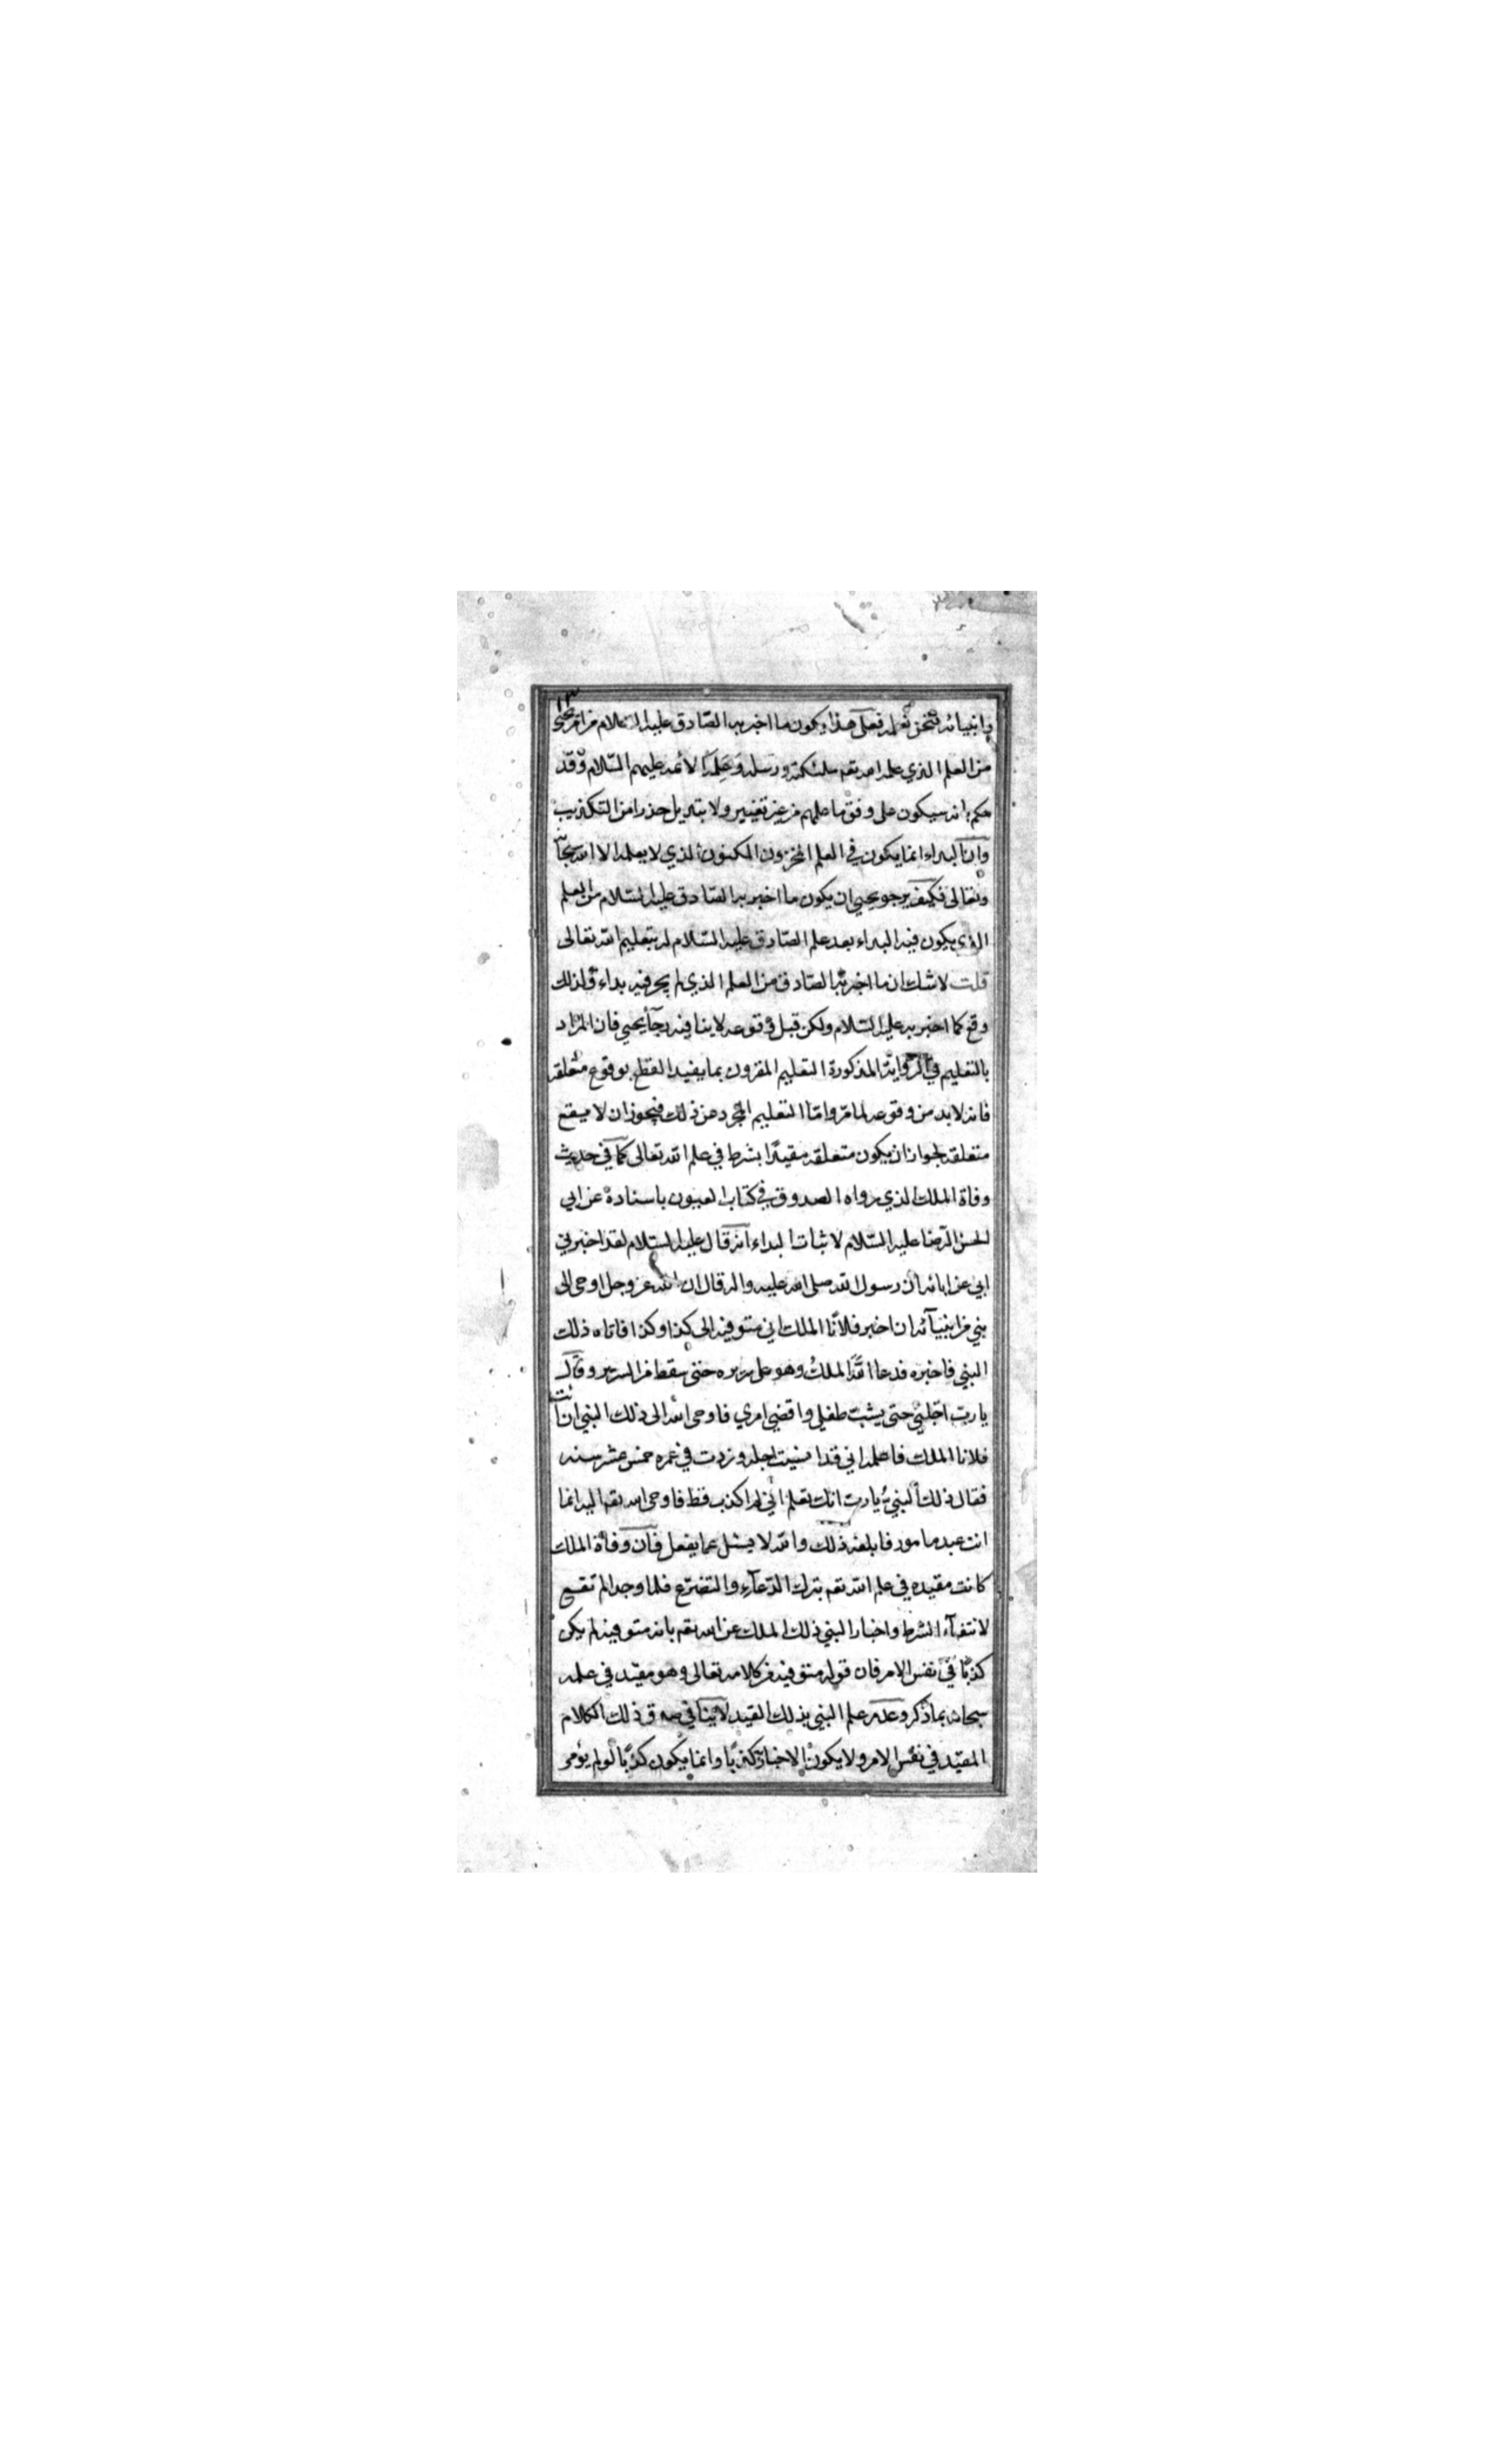 ١٣
وانبيائه فنحن نعلمه فعلى هذا يكون ما اخبر به الصّادق عليه السّلام من امر يحيى
من العلم الذي علمه الله تعم ملئكته ورسله وعلمه الائمه عليهم السّلام وقد
حكم بانه سيكون على وفق ما علمهم من غير تغيير ولا تبديل حذرا من التكذيب
وان البداء انما يكون في العلم المخزون المكنون الذي لا يعلمه الا الله سبحانه
وتعالى فكيف يرجو يحيى ان يكون ما اخبر به الصّادق عليه السّلام من العلم
الذي يكون فيه البداء بعد علم الصّادق عليه السّلام له بتعليم الله تعالى
قلت لا شك ان ما اخبر به الصادق من العلم الذي لم يجر فيه بداء ولذلك
وقع كما اخبر به عليه السّلام ولكن قبل وقوعه لا ينافيه رجآء يحيى فان المراد
بالتعليم في الرواية المذكورة التعليم المقرون بما يفيد القطع بوقوع متعلقه
فانه لا بد من وقوعه لما مرّ وامّا التعليم المجرد عن ذلك فيجوز ان لا يقع
متعلقه لجواز ان يكون متعلقه مقيدًا بشرط في علم الله تعالى كما في حديث
وفاة الملك الذي رواه الصدوق في كتاب العيون باسناده عن ابي
الحسن الرّضا عليه السّلام لاثبات البداء انه قال عليه السّلام لقد اخبرني
ابي عن ابائه ان رسول الله صلى الله عليه واله قال ان الله عز وجل اوحى الى
نبي من انبيآئه ان اخبر فلانًا الملك اني متوفيه الى كذا وكذا فاتاه ذلك
النبي فاخبره فدعا الله الملك وهو على سريره حتى سقط من السرير وقال
يا رب اجّلني حتى يشب طفلي واقضي امري فاوحى الله الى ذلك النبي ان ائت
فلانا الملك فاعلمه اني قد انسيت اجله وزدت في عمره خمس عشر سنه
فقال ذلك النبي يا رب انك تعلم اني لم اكذب قط فاوحى الله تعم اليه انما
انت عبد مامور فابلغه ذلك والله لا يسئل عما يفعل فان وفاة الملك
كانت مقيده في علم الله تعم بترك الدّعآء والتضرّع فلما وجدا لم تقع
لانتفآء الشرط واخبار النبي ذلك الملك عن الله تعم بانه متوفيه لم يكن
كذبًا في نفس الامر فان قوله متوفيه من كلامه تعالى وهو مقيّد في علمه
سبحانه بما ذكر وعدم علم النبي بذلك القيد لا ينافي صدق ذلك الكلام
المقيّد في نفس الامر ولا يكون الاخبار كذبًا وانما يكون كذبًا لو لم يؤمر